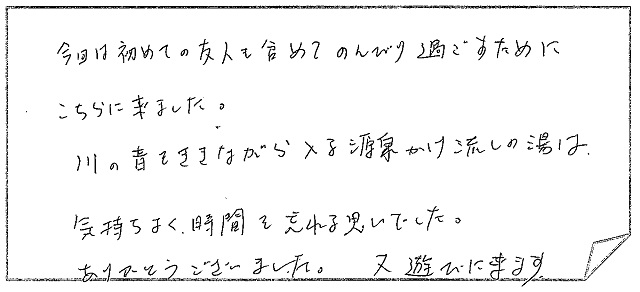 今回は初めての友人も含めてのんびり過ごすために
こちらに来ました。
川の音をききながら入る源泉かけ流しの湯は、
気持ちよく、時間を忘れる思いでした。
ありがとうございました。 又遊びに来ます